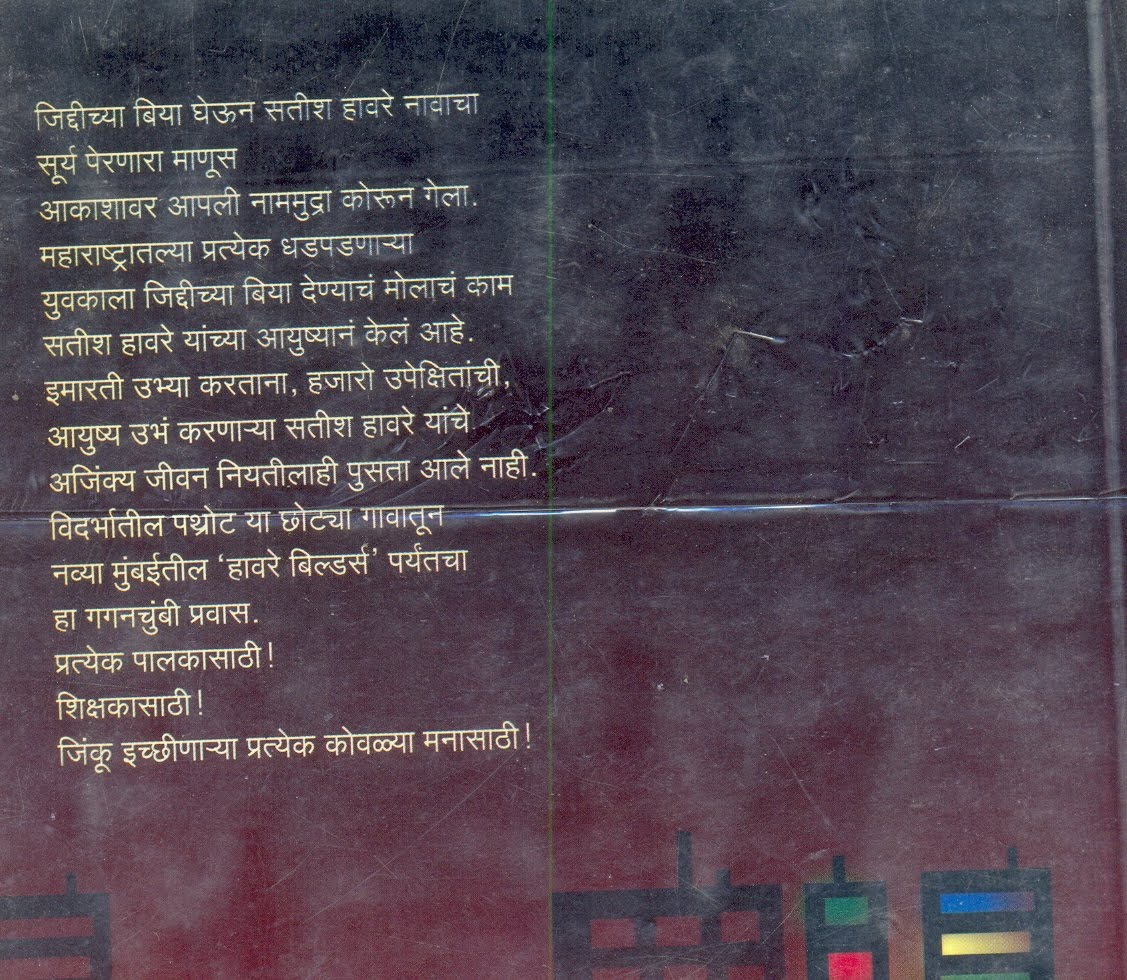 जिद्दीच्या बिया घेऊन सतीश हावरे नावाचा
सूर्य पेरणारा माणूस
आकाशावर आपली नाममुद्रा कोरून गेला.
महाराष्ट्रातल्या प्रत्येक धडपडणाऱ्या
युवकाला जिद्दीच्या बिया देण्याचं मोलाचं काम
सतीश हावरे यांच्या आयुष्यानं केलं आहे.
इमारती उभ्या करताना, हजारो उपेक्षितांची,
आयुष्य उभं करणाऱ्या सतीश हावरे यांचे
अजिंक्य जीवन नियतीलाही पुसता आले नाही.
विदर्भातील पथ्रोट या छोट्या गावातून
नव्या मुंबईतील ‘हावरे बिल्डर्स’ पर्यंतचा
हा गगनचुंबी प्रवास.
प्रत्येक पालकासाठी!
शिक्षकासाठी!
जिंकू इच्छीणाऱ्या प्रत्येक कोवळ्या मनासाठी!